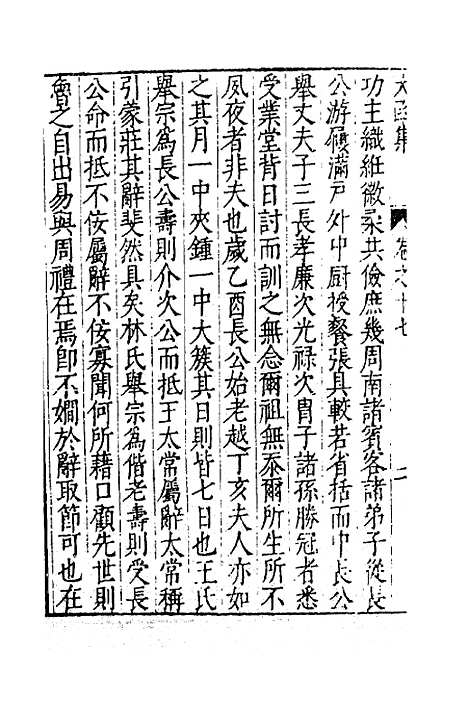 太函集 卷之十七 二
功主織紝徽柔共儉庶幾周南諸賓客諸弟子從長
公游屨滿戸外中厨授餐張具較若省括而中長公
舉丈夫子三長孝廉次光祿次胄子諸孫勝冠者悉
受業堂背日討而訓之無念爾祖無忝爾所生所不
夙夜者非夫也歲乙酉長公始老越丁亥夫人亦如
之其月一中夾鍾一中大簇其日則皆七日也王氏
舉宗爲長公壽則介次公而抵王太常屬辭太常稱
引蒙莊其辭斐然具矣林氏舉宗爲偕老壽則受長
公命而抵不佞屬辭不佞寡聞何所藉口顧先世則
魯之自出易與周禮在焉卽不嫺於辭取節可也在